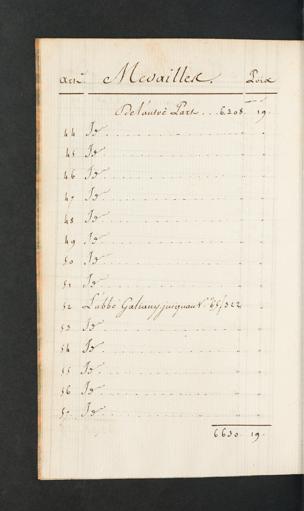 Art. Medailles. Poix
De l'autre Part . . . 6308. 19.
44 Id.
45 Id.
46 Id.
47 Id.
48 Id.
49 Id.
50 Id.
51 Id.
52 L'abbé Galiany jusquau N.° 65/322
53 Id.
54 Id.
55 Id.
56 Id.
57 Id.
6630. 19.